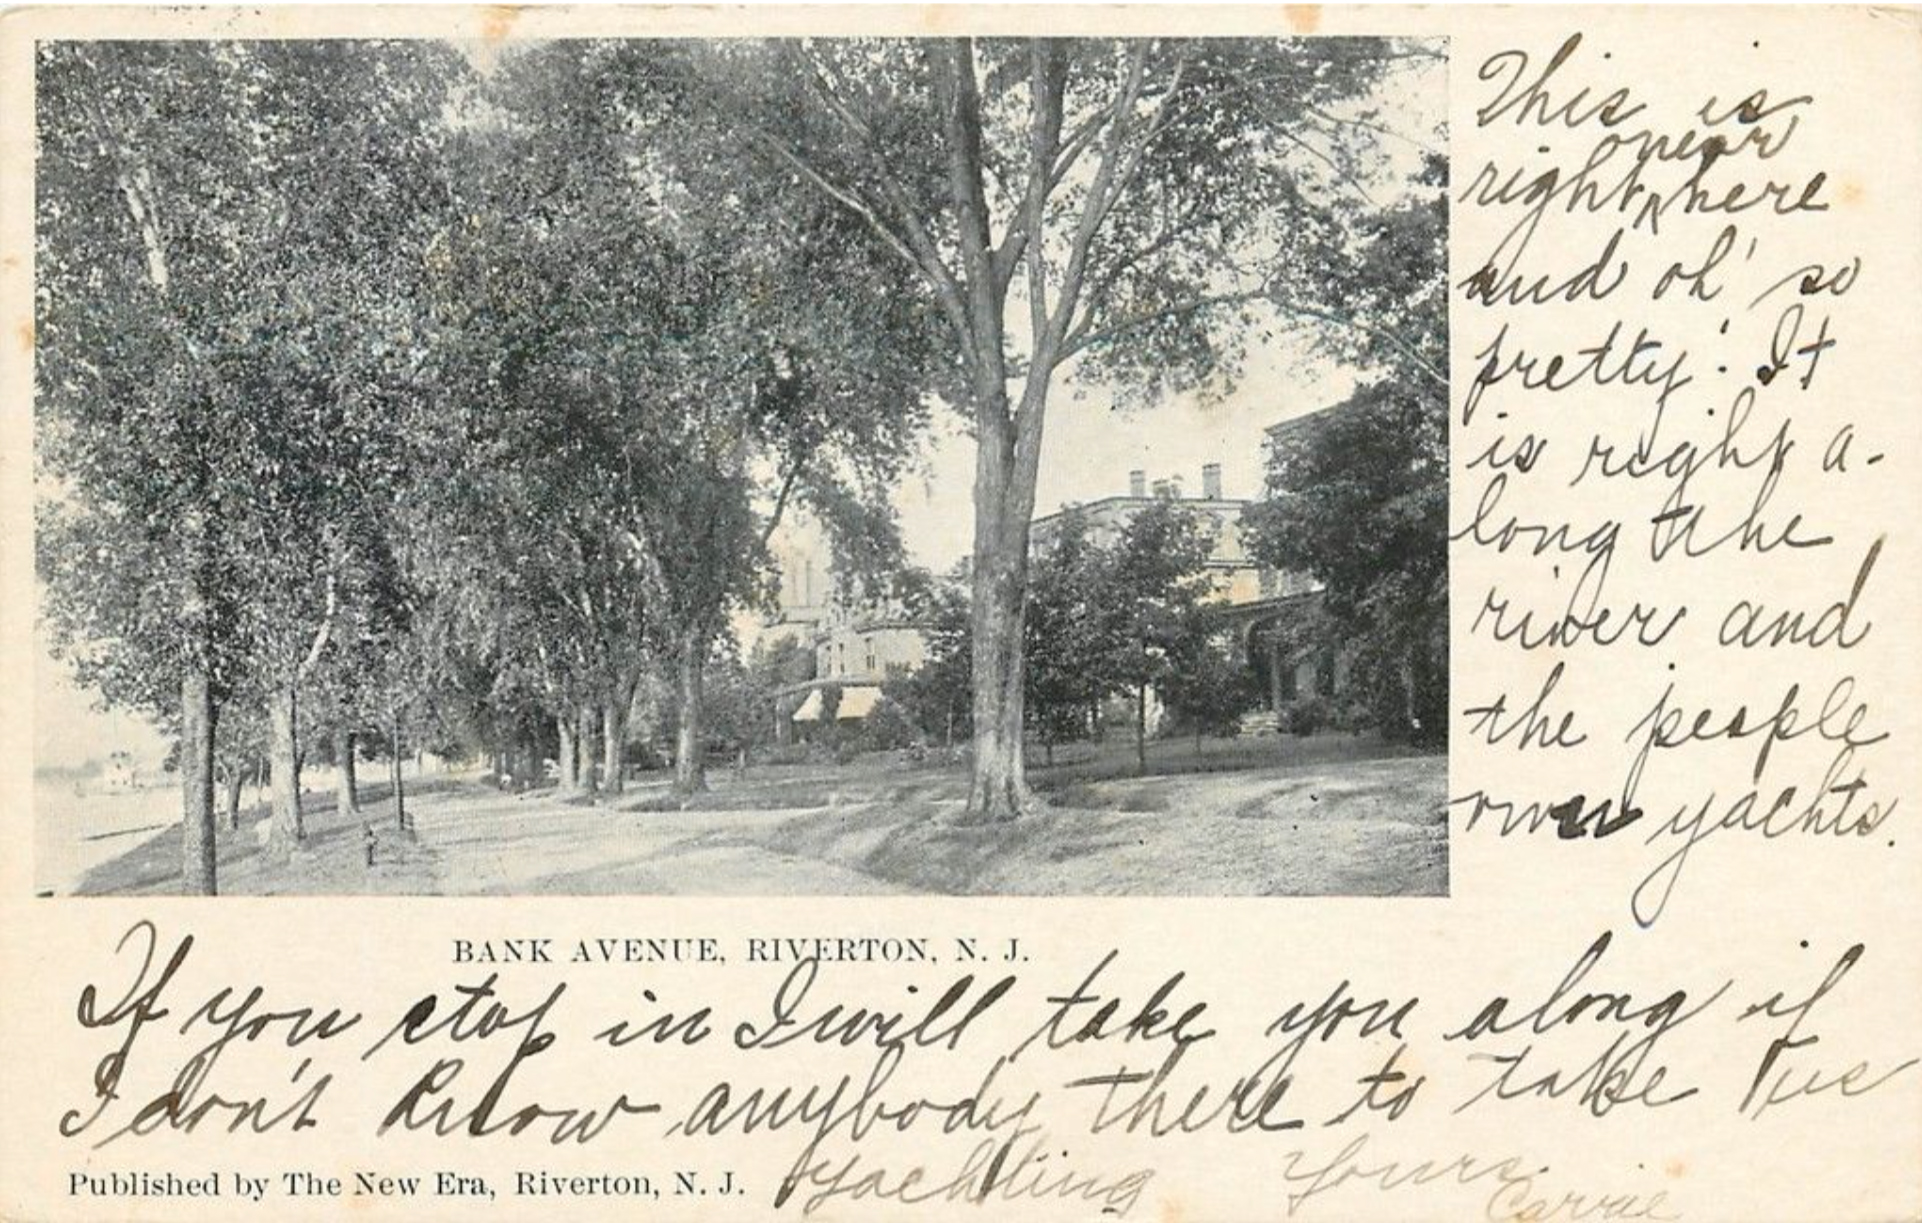 This is
right near here
and oh' so
pretty! It
is right a-
long the
river and
the people
own yachts.
BANK AVENUE, RIVERTON, N. J.
If you stop in I will take you along if
I don't know anybody there to take us
yachting Yours
Carrie
Published by The New Era, Riverton, N. J.